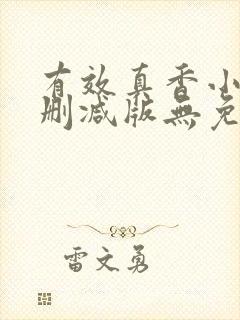 有效真香小
删减版無免
雷文勇